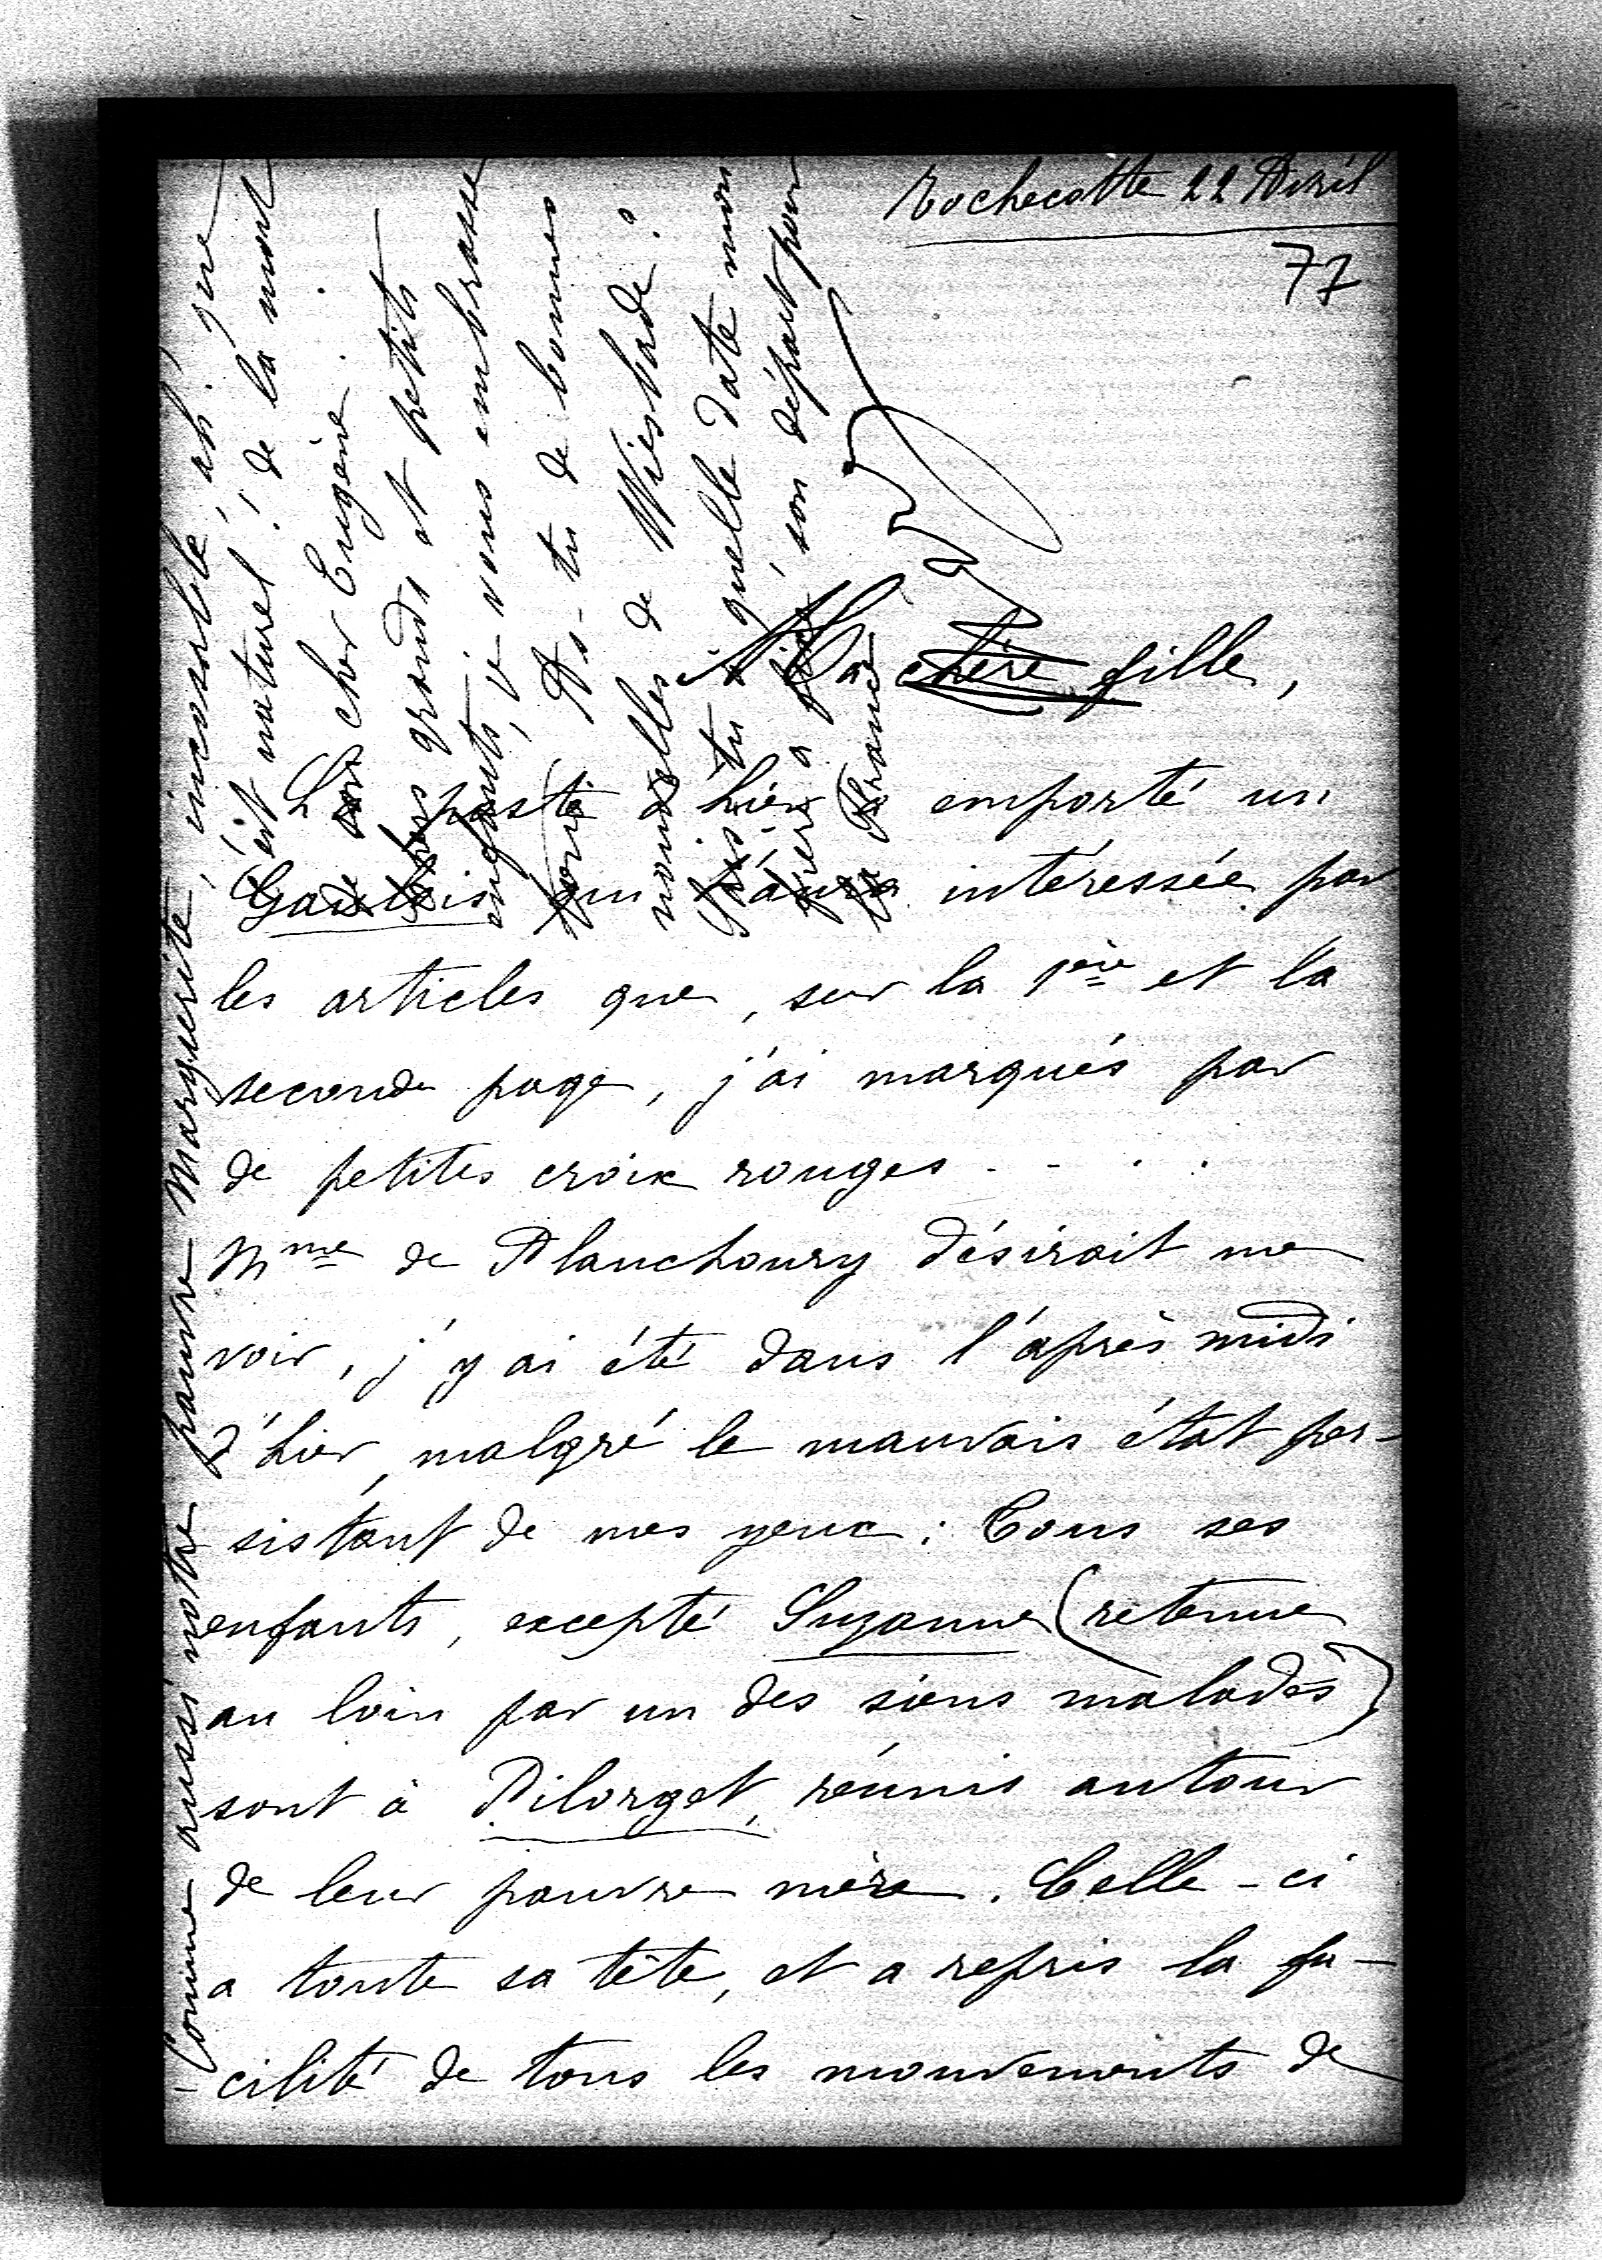 Rochecotte 22 Avril
77
Ma chère fille,
La poste d'hier a emporté un
Gaulois qui t'aura intéressée par
les articles que, sur la 1ère et la
seconde page, j'ai marqués par
de petites croix rouges....
Mme de Planchoury désirait me
voir, j'y ai été dans l'après midi
d'hier, malgré le mauvais état per-
sistant de mes yeux: Tous ses
enfants, excepté Suzanne (retenue
au loin par un des siens malades)
sont à Pilorget, réunis autour
de leur pauvre mère. Celle-ci
a toute sa tête, et a repris la fa-
-cilité de tous les mouvements de
Comme aussi notre pauvre Marguerite, inconsolable, ah! que
c'est naturel! de la mort
de son cher Eugène.
Chers grands et petits
enfants, je vous embrasse
tous. As-tu de bonnes
nouvelles de Wiesbade?
Sais-tu à quelle date mon
frère a fixé son départ pour
la France